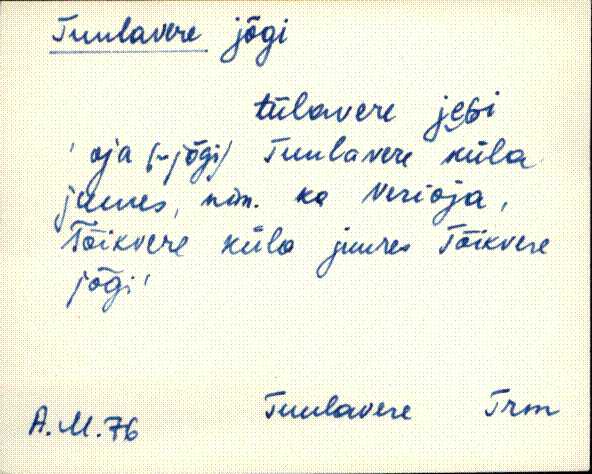 Tuulavere jõgi
tūlavere jegi
' oja (~jõgi) Tuulavere küla
juures, nim. ka Verioja,
Tõikvere küla juures Tõikvere
jõgi '
Tuulavere Trm
A.M.76